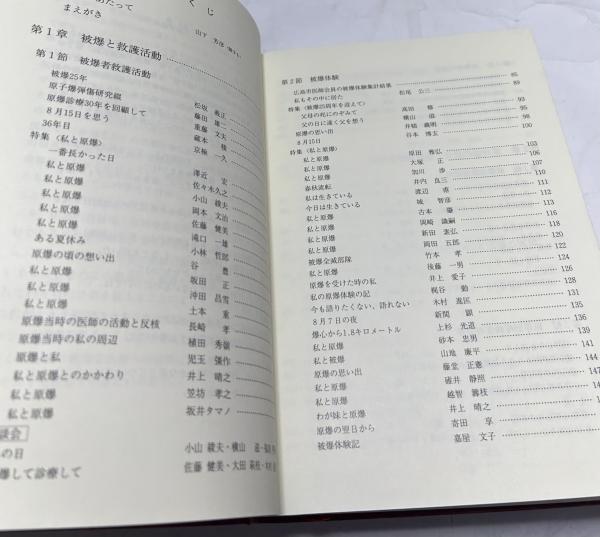 くじ
あたって
まえがき
第1章 被爆と救護活動
第1節 被爆者救護活動
被爆25年
原子爆弾傷研究縦 松坂 義正
原爆診療30年を回顧して 藤田 雄二
8月15日を思う 重藤 文夫
36年目 蔵本 稜
特集〈私と原爆〉 京極 一久
一番長かった日
私と原爆 澤近 宏
私と原爆 佐々木久之
私と原爆 小山 綾夫
私と原爆 岡本 文治
私と原爆 佐藤 健美
ある夏休み 滝口 一雄
原爆の頃の想い出 小林 哲郎
私と原爆 谷 豊
私と原爆 坂田 正
私と原爆 沖田 昌雪
原爆当時の医師の活動と反核 土本 薫
原爆当時の私の周辺 長崎 孝
原爆と私 植田 秀嶺
私と原爆とのかかわり 児玉 強作
私と原爆 井上 晴之
私と原爆 笠坊 孝之
坂井タマノ
談会
の日 小山 綾夫・横山
爆して診療して 佐藤 健美・太田 萩枝
第2節 被爆体験
広島市医師会員の被爆体験集計結果 85
私もその中に居た 松尾 公三 89
特集〈被爆25周年を迎えて〉
父母の死にのぞみて 高田 93
父の日に遠く父を想う 横山 97
原爆の思い出 井槌 義明 98
8月15日 谷本 博太 100
特集〈私と原爆〉
私と原爆 原田 雅弘 103
私と原爆 大塚 正 106
私と原爆 加川 渉 107
春秋流転 井内 良三 110
私は生きている 渡辺 重 111
今日は生きている 城 智彦 112
私と原爆 古本 肇 114
私と原爆 岡崎 識嗣 116
私と原爆 新田 㐮弘 118
被爆全滅部隊 岡田 五郎 120
私と原爆 竹本 孝 122
原爆を受けた時の私 後藤 一男 124
私の原爆体験の記 井上 愛子 128
今も語りたくない、語れない 梶谷 勤 131
8月7日の夜 木村 進匡 135
爆心から1.8キロメートル 新開 顕 135
私と原爆 上杉 光道 136
私と被爆 砂本 忠男 139
原爆の思い出 山地 廉平 141
私と原爆 藤堂 正憲 144
私と原爆 碓井 静照
わが妹と原爆 越智 籌枝 147
原爆の翌日から 井上 晴之
被爆体験記 寄田 享
嘉屋 文子